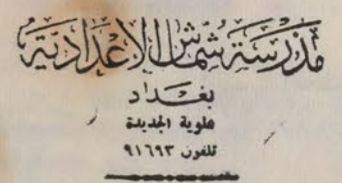 مَدْرَسَة شَمَّاش الإعْدَادِيَّة
بغداد
علوية الجديدة
تلفون ٩١٦٩٣